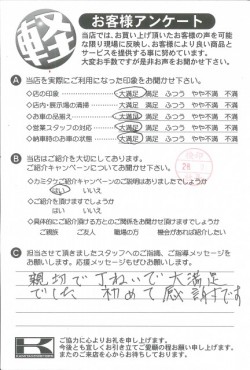 軽
お客様アンケート
当店では、お買い上げ頂いたお客様の声を可能
な限り現場に反映し、お客様により良い商品と
サービスを提供する事に努めています。
大変お手数ですが是非お声をお聞かせ下さい。
A 当店を実際にご利用になった印象をお聞かせ下さい。
◇店の印象 大満足 満足 ふつう やや不満 不満
◇店内・展示場の清掃 大満足 満足 ふつう やや不満 不満
◇お車の品揃え 大満足 満足 ふつう やや不満 不満
◇営業スタッフの対応 大満足 満足 ふつう やや不満 不満
◇納車時のお車の状態 大満足 満足 ふつう やや不満 不満
B 当店はご紹介を大切にしております。
ご紹介キャンペーンについてお聞かせ下さい。
◇カミタケご紹介キャンペーンのご説明はありましたでしょうか
はい いいえ
◇ご紹介を頂けますでしょうか
はい いいえ
◇具体的にご紹介頂ける方とのご関係をお聞かせ頂けますでしょうか
ご親族 ご友人 職場の方 機会があれば紹介したい
C 担当させて頂きましたスタッフへのご指摘、ご指導メッセージを
お願いします。応援メッセージもぜひお願いします。
親切で丁ねいで大満足
でした 初めて感謝です
K
ご協力に心よりお礼を申し上げます。
今後とも宜しくお引立てご愛顧の程お願い申し上げます。
またのご来店を心からお待ちしております。